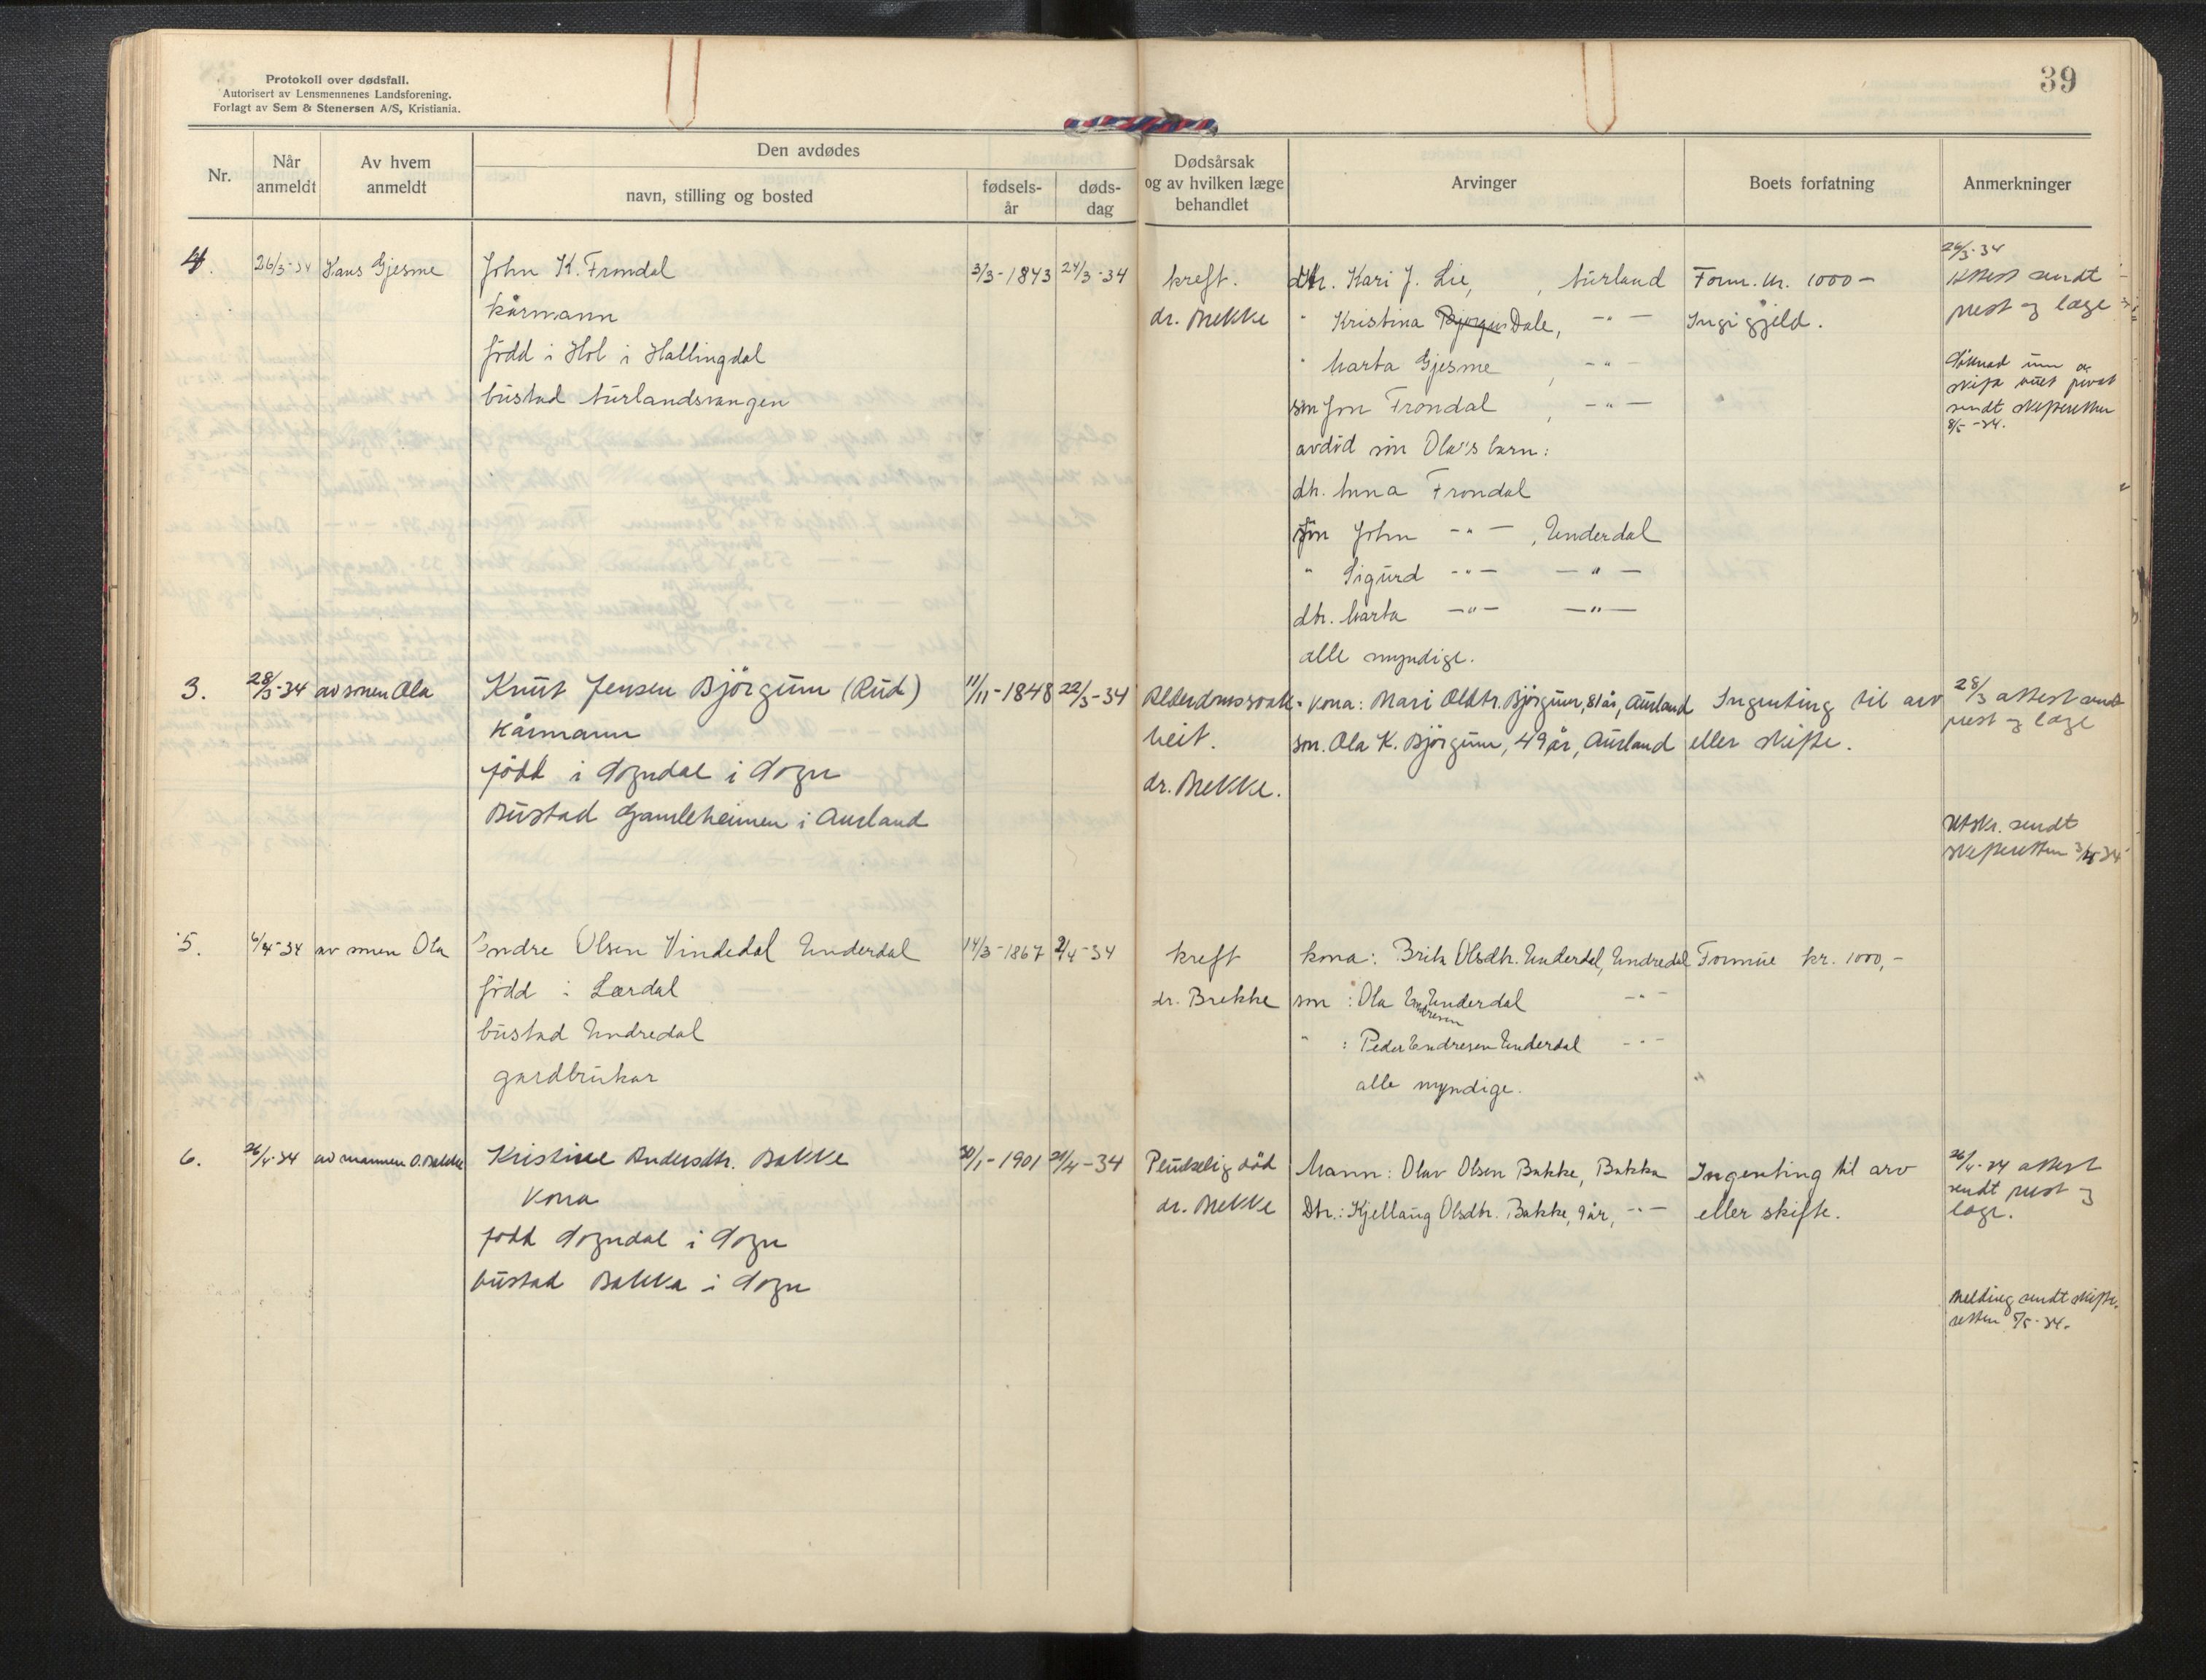 Protokoll over dødsfall.
Autorisert av Lensmennenes Landsforening.
Forlagt av Sem & Stenersen A/S, Kristiania.
39
Nr.
Når anmeldt
Av hvem anmeldt
Den avdødes
navn, stilling og bosted
fødsels-år
døds-dag
Dødsårsak og av hvilken læge behandlet
Arvinger
Boets forfatning
Anmerkninger
4. 26/3-34 Hans Gjesme
John K. Frondal
kårmann
född i Hol i Hallingdal
bustad Aurlandsvangen
3/3-1843 24/3-34
kreft.
dr. Brekke
dtr. Kari J. Lie, , Aurland
" Kristina Dale, -"-
" Marta Gjesme , -"-
son Jon Frondal , -"-
avdöd son Ola's barn:
dtr. Anna Frondal
son John -"- , Underdal
" Sigurd -"- -"-
dtr. Marta -"- -"-
alle myndige.
Form. kr. 1000-
Ingi gjeld.
26/3-34
Attest sendt
prest og læge
Söknad um å
skifta buet privat
sendt skifteretten
8/5-34.
3. 28/3-34 av sonen Ola
Knut Jensen Björgum (Rud)
Kårmann
född i Sogndal i Sogn
Bustad Gamleheimen i Aurland
11/11-1848 22/3-34
Alderdomssvak-
heit.
dr. Brekke.
Kona: Mari Oldtr. Björgum, 81 år, Aurland
son. Ola K. Björgum, 49 år, Aurland
Ingenting til arv
eller skifte.
28/3 attest sendt
prest og læge
Utskr. sendt
skifteretten 3/4-34
5. 6/4-34 av sonen Ola
Endre Olsen Vindedal Underdal
född i Lærdal
bustad Undredal
gardbrukar
14/3-1867 2/4-34
kreft
dr. Brekke
kona: Brita Olsdtr. Underdal, Undredal
son : Ola Endresen Underdal -"-
" : Peder Endresen Underdal -"-
alle myndige.
Formue kr. 1000,-
6. 26/4-34 av mannen O. Bakke
Kristine Andersdtr. Bakke
Kona
född Sogndal i Sogn
bustad Bakka i Sogn
30/1-1901 21/4-34
Plutselig död
dr. Brekke
Mann: Olav Olsen Bakke, Bakka
Dtr.: Kjellaug Olsdtr. Bakke, 9 år, -"-
Ingenting til arv
eller skifte.
26/4-34 attest
sendt prest og
læge.
Melding sendt skifte-
retten 5/5-34.